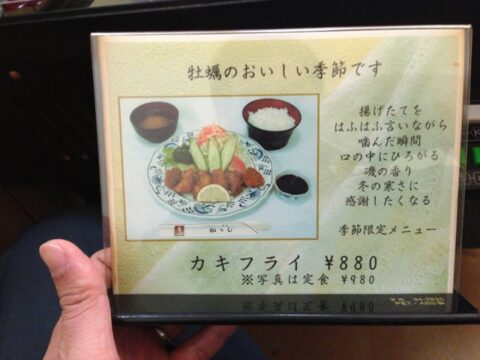 牡蠣のおいしい季節です
揚げたてを
はふはふ言いながら
噛んだ瞬間
口の中にひろがる
磯の香り
冬の寒さに
感謝したくなる
季節限定メニュー
カキフライ ¥880
※写真は定食 ¥980